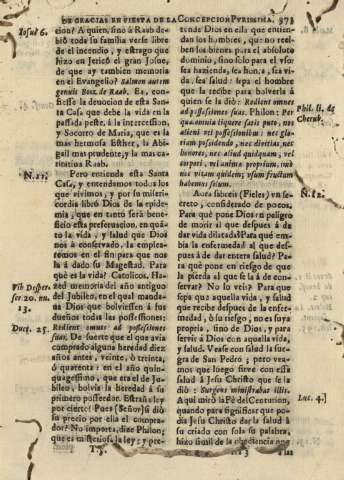 DE GRACIAS EN FIESTA DE LA CONCEPCION PVRISSIMA. 373
Iosuè 6.
cion? A quien, sino à Raab de-
biò toda su familia verse libre
de el incendio, y estrago que
hizo en Jericò el gran Josue,
de que ay tambien memoria
en el Evangelio? Salmon autem
genuit Booz de Raab. Ea, con-
fiesse la devocion de esta San-
ta Casa que debe la vida en la
passada peste, à la intercession,
y Socorro de Maria, que es la
mas hermosa Esther, la Abi-
gail mas prudente, y la mas ca-
ritativa Raab.
N.11.
Pero entienda esta Santa
Casa, y entendamos todos los
que vivimos, y por su miseri-
cordia librò Dios de la epide-
mia, que en tanto serà bene-
ficio esta preservacion, en quã-
to la vida, y salud que Dios
nos à conservado, la emplea-
rèmos en el fin para que nos
la à dado su Magestad. Para
què es la vida? Catolicos. Ha-
zed memoria del año antiguo
del Jubileo, en el qual manda-
na Dios que bolviessen à sus
dueños todas las possessiones:
Vib Disper-
ser 20. nu.
13.
Duct. 25.
Redient omnes ad possessiones
suas. De suerte que el que avia
comprado alguna heredad diez
años antes, veinte, ò treinta,
ò quarenta: en el año quin-
quagessimo, que era el de Ju-
bileo, bolvia la heredad à su
primero posseedor. Estraña ley
por cierto! Pues (Señor) si diò
su precio por ella el compra-
dor? No importa, dize Philon;
que es misteriosa la ley: y pre-
tende Dios en ella que entien-
dan los hombres, que no reci-
ben los bienes para el absoluto
dominio, sino solo para el vso:
sea hazienda, sea honra, sea vi-
da, sea salud: sepa el hombre
que la recibe para bolverla à
quien se la diò: Redient omnes
ad possessiones suas. Philon: Per
Phil. li. de
Cherub.
quam innuere satis puto, nos
alieni vel possessionibus: nec glo-
riam possidendo, nec divitias, nec
honores, nec aliud quidquam, vel
corpori, vel animo proprium, imò
nec vitam quidem; vsum fructum
habemus solum.
N.12.
Aora sabreis (Fieles) vn se-
creto, considerado de pocos.
Para què pone Dios en peligro
de morir al que despues à de
dar vida dilatada? Para què em-
bia la enfermedad al que des-
pues à de dar entera salud? Pa-
ra què pone en riesgo de que
la pierda al que se la à de con-
servar? No lo veis? Para que
sepa que aquella vida, y salud
que recibe despues de la enfer-
medad, ò su riesgo, no es suya
propria, sino de Dios, y para
servir à Dios con aquella vida,
y salud. Vease con salud la sue-
gra de San Pedro; pero vea-
mos que luego sirve con essa
salud à Jesu Christo que se la
diò: Surgens ministrabat illis.
Luc. 4.
Aqui mirò la Fè del Centurion,
quando para significar que po-
dia Jesu Christo dar la salud à
su criado con sola su palabra,
hizo simil de la obediencia que